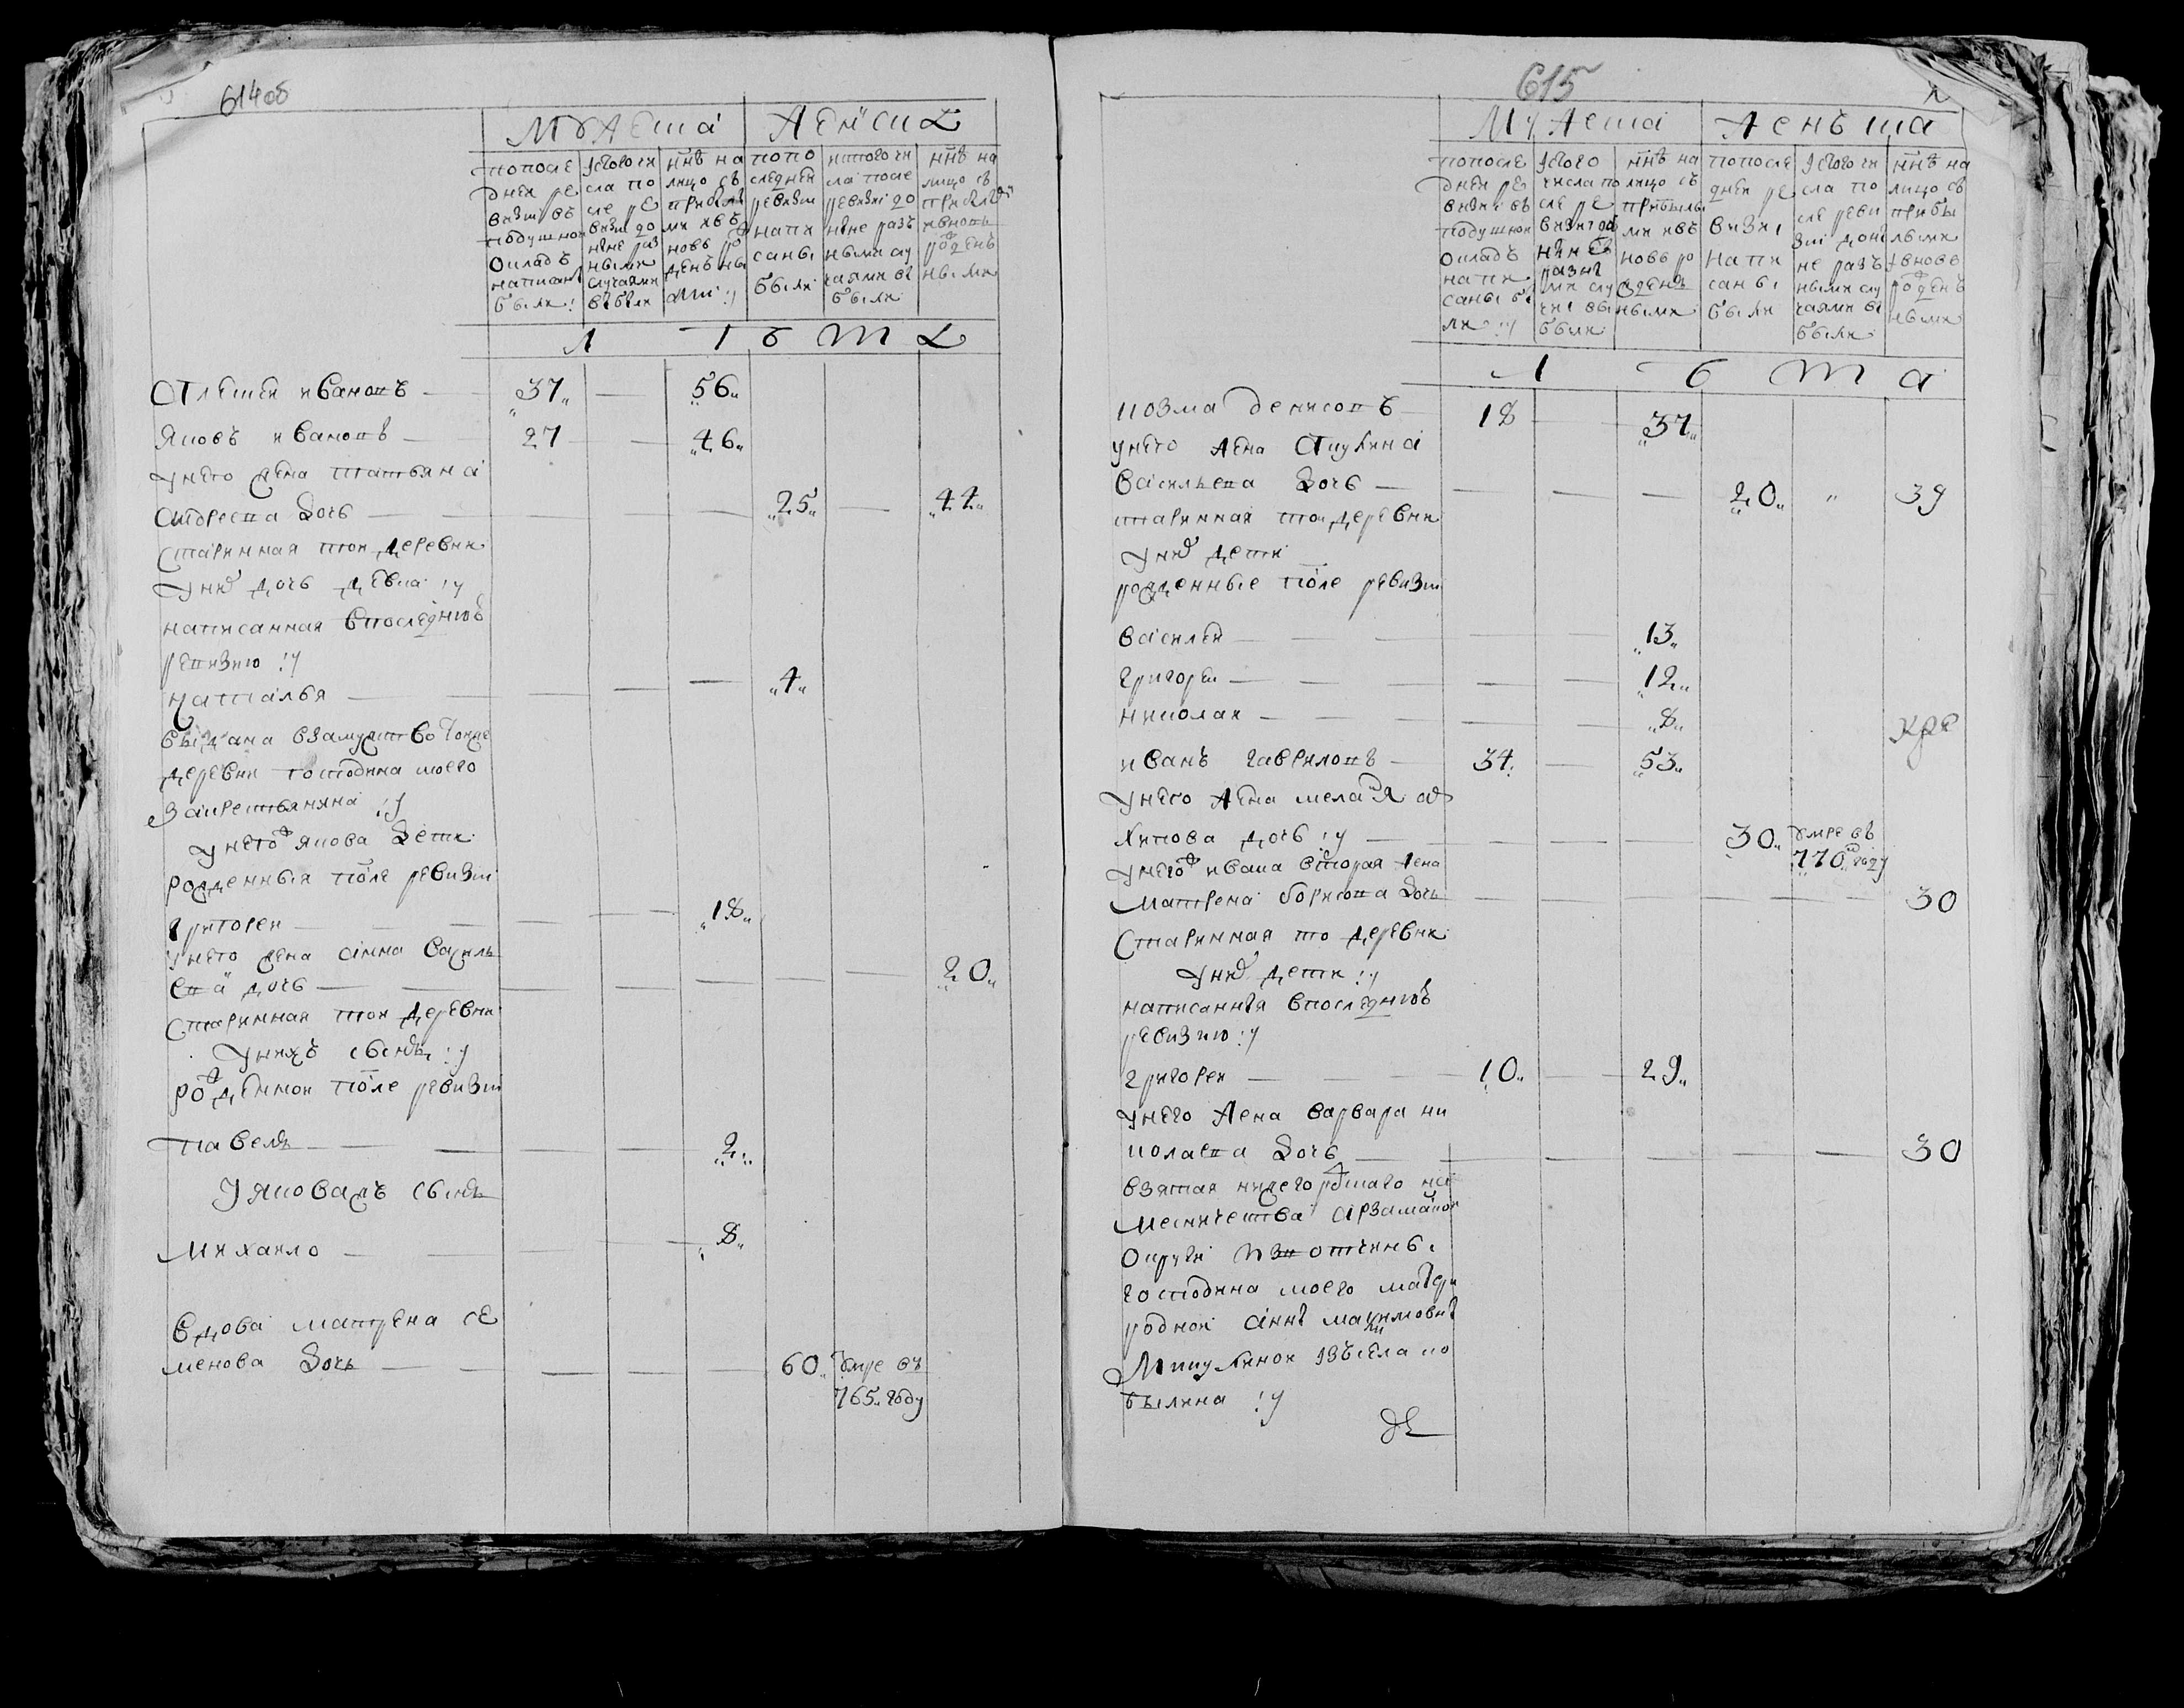 614об
Мужеска Женска
попосле
дней ре
визи въ
подушной
окладъ
написаны
были :
изтого чи
сла по
сле ре
визи до
ныне раз
ными
случаями
выбыли
ныне на
лицо съ
прибылы
ми и въ
новь ро
жденны
ми :/
попо
следней
ревизи
напи
саны
были
истого чи
сла после
ревизи до
ныне разъ
ными слу
чаями вы
были
ныне на
лицо съ
прибылы
ми вновь
рожденъ
ными
Л Ѣ т а
Алексей Ивановъ 37 56
Яковъ Ивановъ 27 46
унего жена татьяна
андреева дочь 25 44
старинная той деревни
уних дочь девка :/
написанная впоследнюю
ревизию :/
наталья 4
выдана взамужство тойже
деревни господина моего
закрестьянина :/
унегож якова дети
рожденныя после ревизи
григорей 18
унего жена анна василь
ева дочь 20
старинная той деревни
унихъ сынъ :/
рожденной после ревизи
павелъ 2
уяковажъ сынъ
михайло 8
вдова матрена се
менова дочь 60 умре въ
765 году
615
Мужеска Женъска
попосле
дней ре
визи въ
подушной
окладъ
напи
саны бы
ли :/
изтого
числа по
сле ре
визи до
ныне
разны
ми слу
чаи вы
были
ныне на
лицо съ
прибылы
ми и въ
новь ро
жденъ
ными
попосле
дней ре
визи
напи
саны
были
изтого чи
сла по
сле реви
зи доны
не разъ
ными слу
чаями вы
были
ныне на
лицо съ
прибы
лыми
и вновь
рожденъ
ными
Л Ѣ т а
козма денисовъ 18 37
унего жена акулина
васильева дочь 20 39
старинная той деревни
уних дети
рожденные после ревизи
василей 13
григорей 12
николай 8
иванъ гавриловъ 34 53
унего жена меланя
хипова дочь :/ 30 умре въ
770 году
унегож ивана вторая жена
матрена борисова дочь 30
старинная той деревни
уних дети :/
написанныя впоследнюю
ревизию :/
григорей 10 29
унего жена варвара ни
колаева дочь 30
взятая нижегородскаго на
месничества арзамаской
округи изъ вотчины
господина моего матери
родной анны максимовны
изъ села ко
былина :/